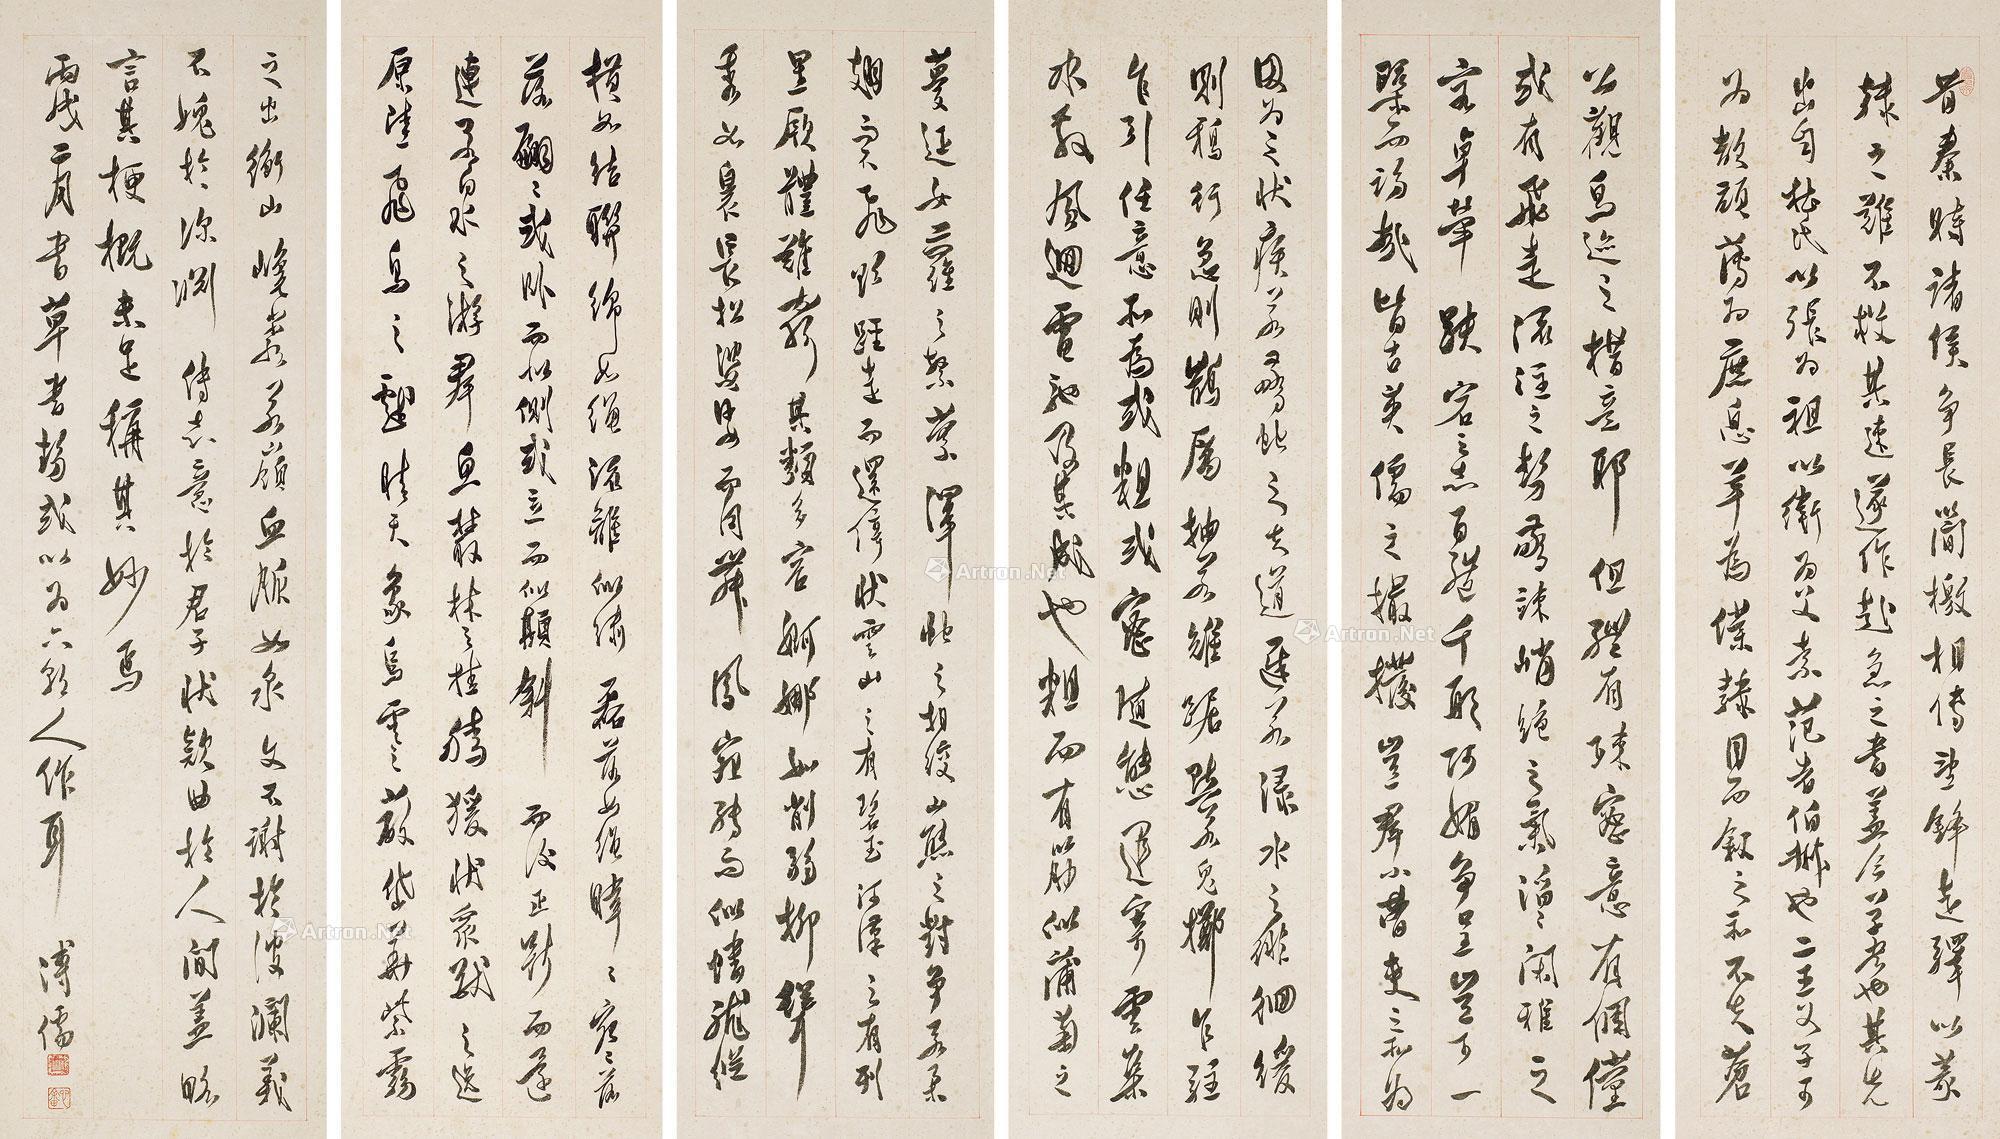 昔秦時諸侯爭長簡檄相傳望烽走驛以篆
隸之難不救其速遂作赴急之書蓋今草書也其先
出自杜氏以張為祖以衛為父索范者伯叔也二王父子可
為兄弟薄為庶息羊為僕隸目而敘之亦不失蒼
公觀鳥迹之措意耶但體有疎密意有倜儻
或有飛走流注之勢驚竦峭絕之氣滔滔閑雅之
容卓犖跌宕之志百體千形巧媚爭呈豈可一
槩而論哉皆古英儒之撮撥豈群小皂吏之所為
因為之狀曰疾若驚蛇之失道遲若淥水之徘徊緩
則鴉行急則鵲厲抽若雉踞點若兔擲乍駐
乍引任意所為或粗或密隨態運奇雲集
水散風迴電馳及其成也粗而有筋似蒲萄之
蔓延女蘿之繁縈澤蛟之相絞山熊之對爭若舉
翅而不飛欲走而還停狀雲山之有玄玉河漢之有列
星厥體難窮其類多容婀娜如削弱柳聳
拔如裊長松婆娑而同舞鳳宛轉而似蟠龍縱
橫如結聯綿如繩流離似繡磊落如繩暐暐曄曄弈弈
翩翩或臥而似側或立而似顛斜而復正斷而還
連若白水之游群魚叢林之掛騰猿狀衆獸之逸
原陸飛鳥之戲晴天象烏雲之蔽岱華紫霧
之出衡山巉巖若嶺血脈如泉文不謝於波瀾義
不愧於深淵傳志意於君子狀欵曲於人間蓋略
言其梗概未足稱其妙焉
丙戌二月書草書勢或以為六朝人作耳 溥儒
Artron.Net
Artron.Net
Artron.Net